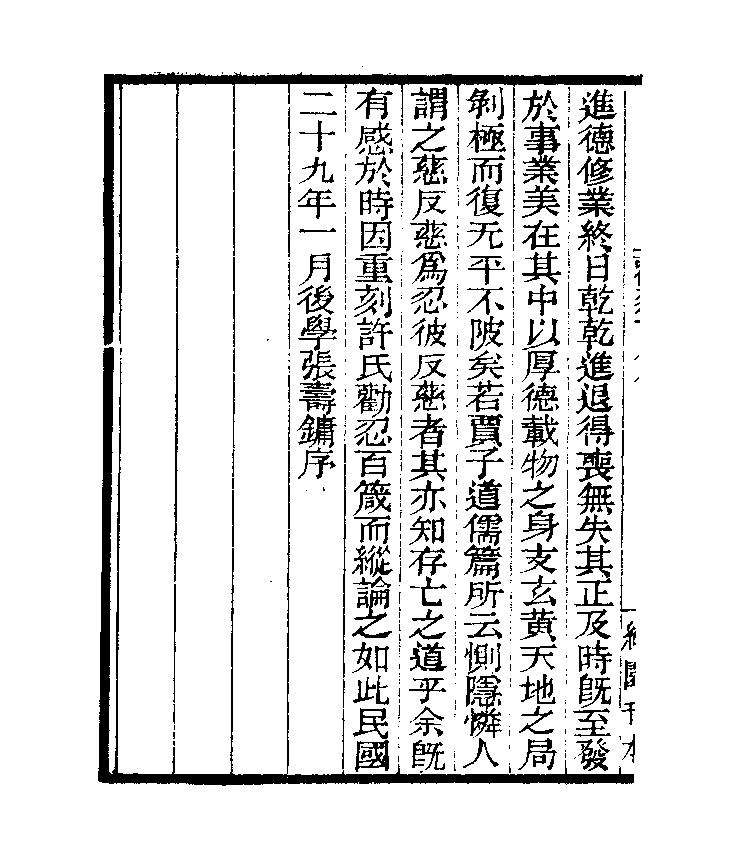 進德修業終日乾乾進退得喪無失其正及時既至發
於事業美在其中以厚德載物之身支玄黃天地之局
剝極而復无平不陂矣若賈子道儒篇所云惻隱憐人
謂之慈反慈爲忍彼反慈者其亦知存亡之道乎余既
有感於時因重刻許氏勸忍百箴而縱論之如此民國
二十九年一月後學張壽鏞序